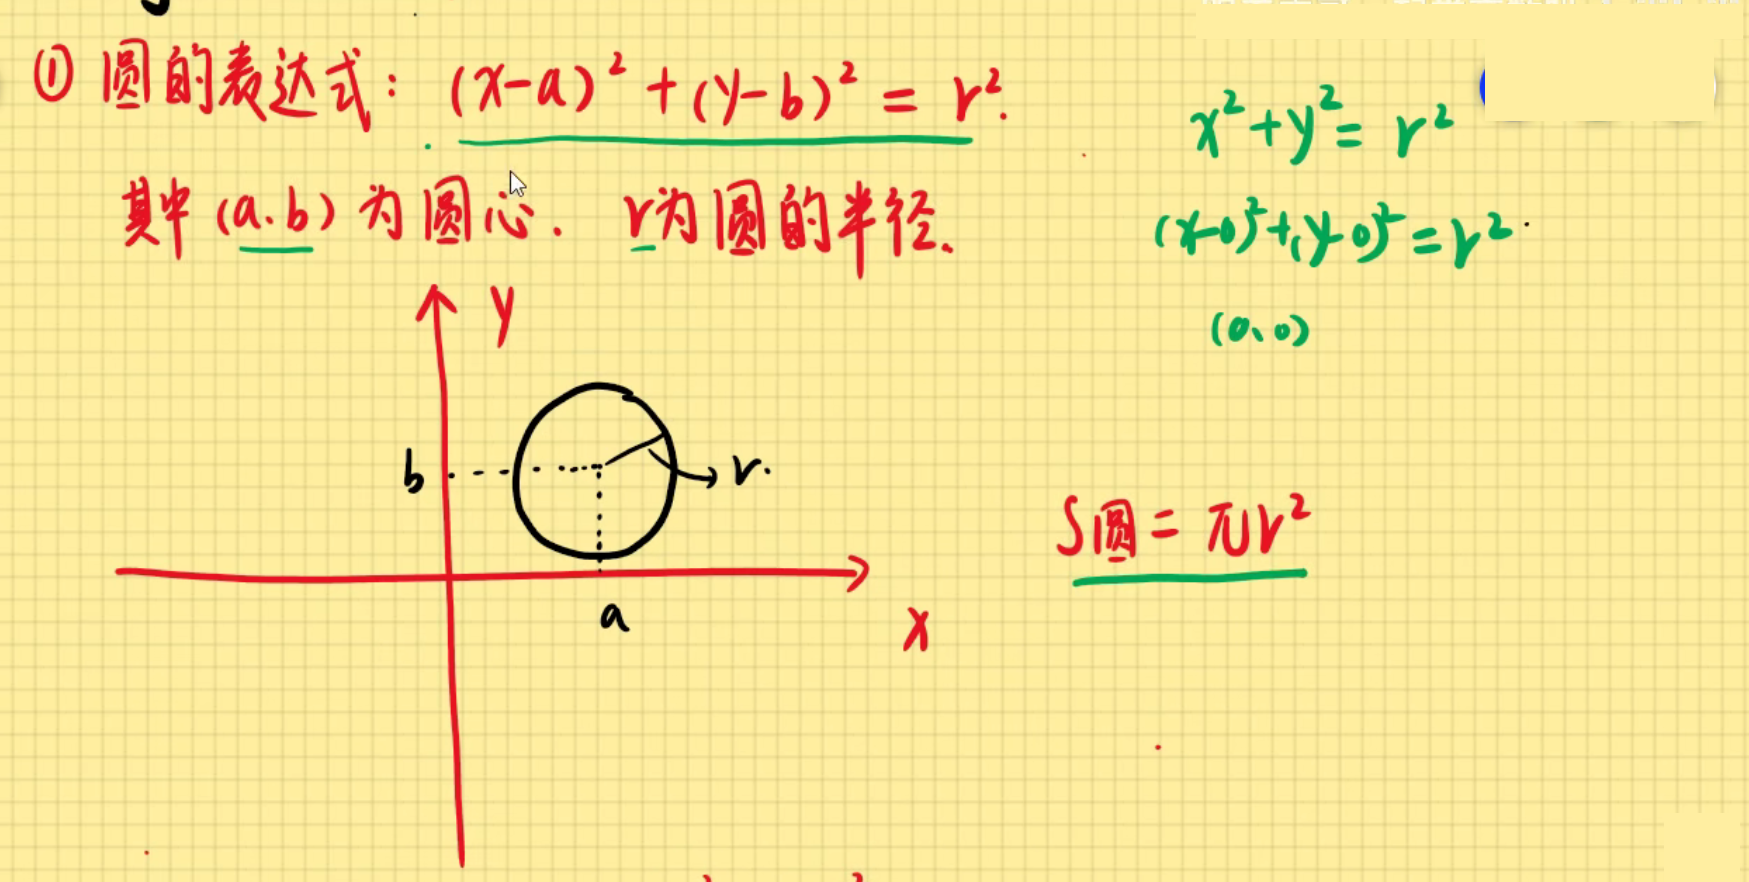 ① 圆的表达式: (x-a)² + (y-b)² = r².
其中 (a.b) 为圆心. r为圆的半径.
x²+y²= r²
(x-0)²+(y-0)²=r²
(0、0)
y
b
r.
a
x
S圆 = πr²